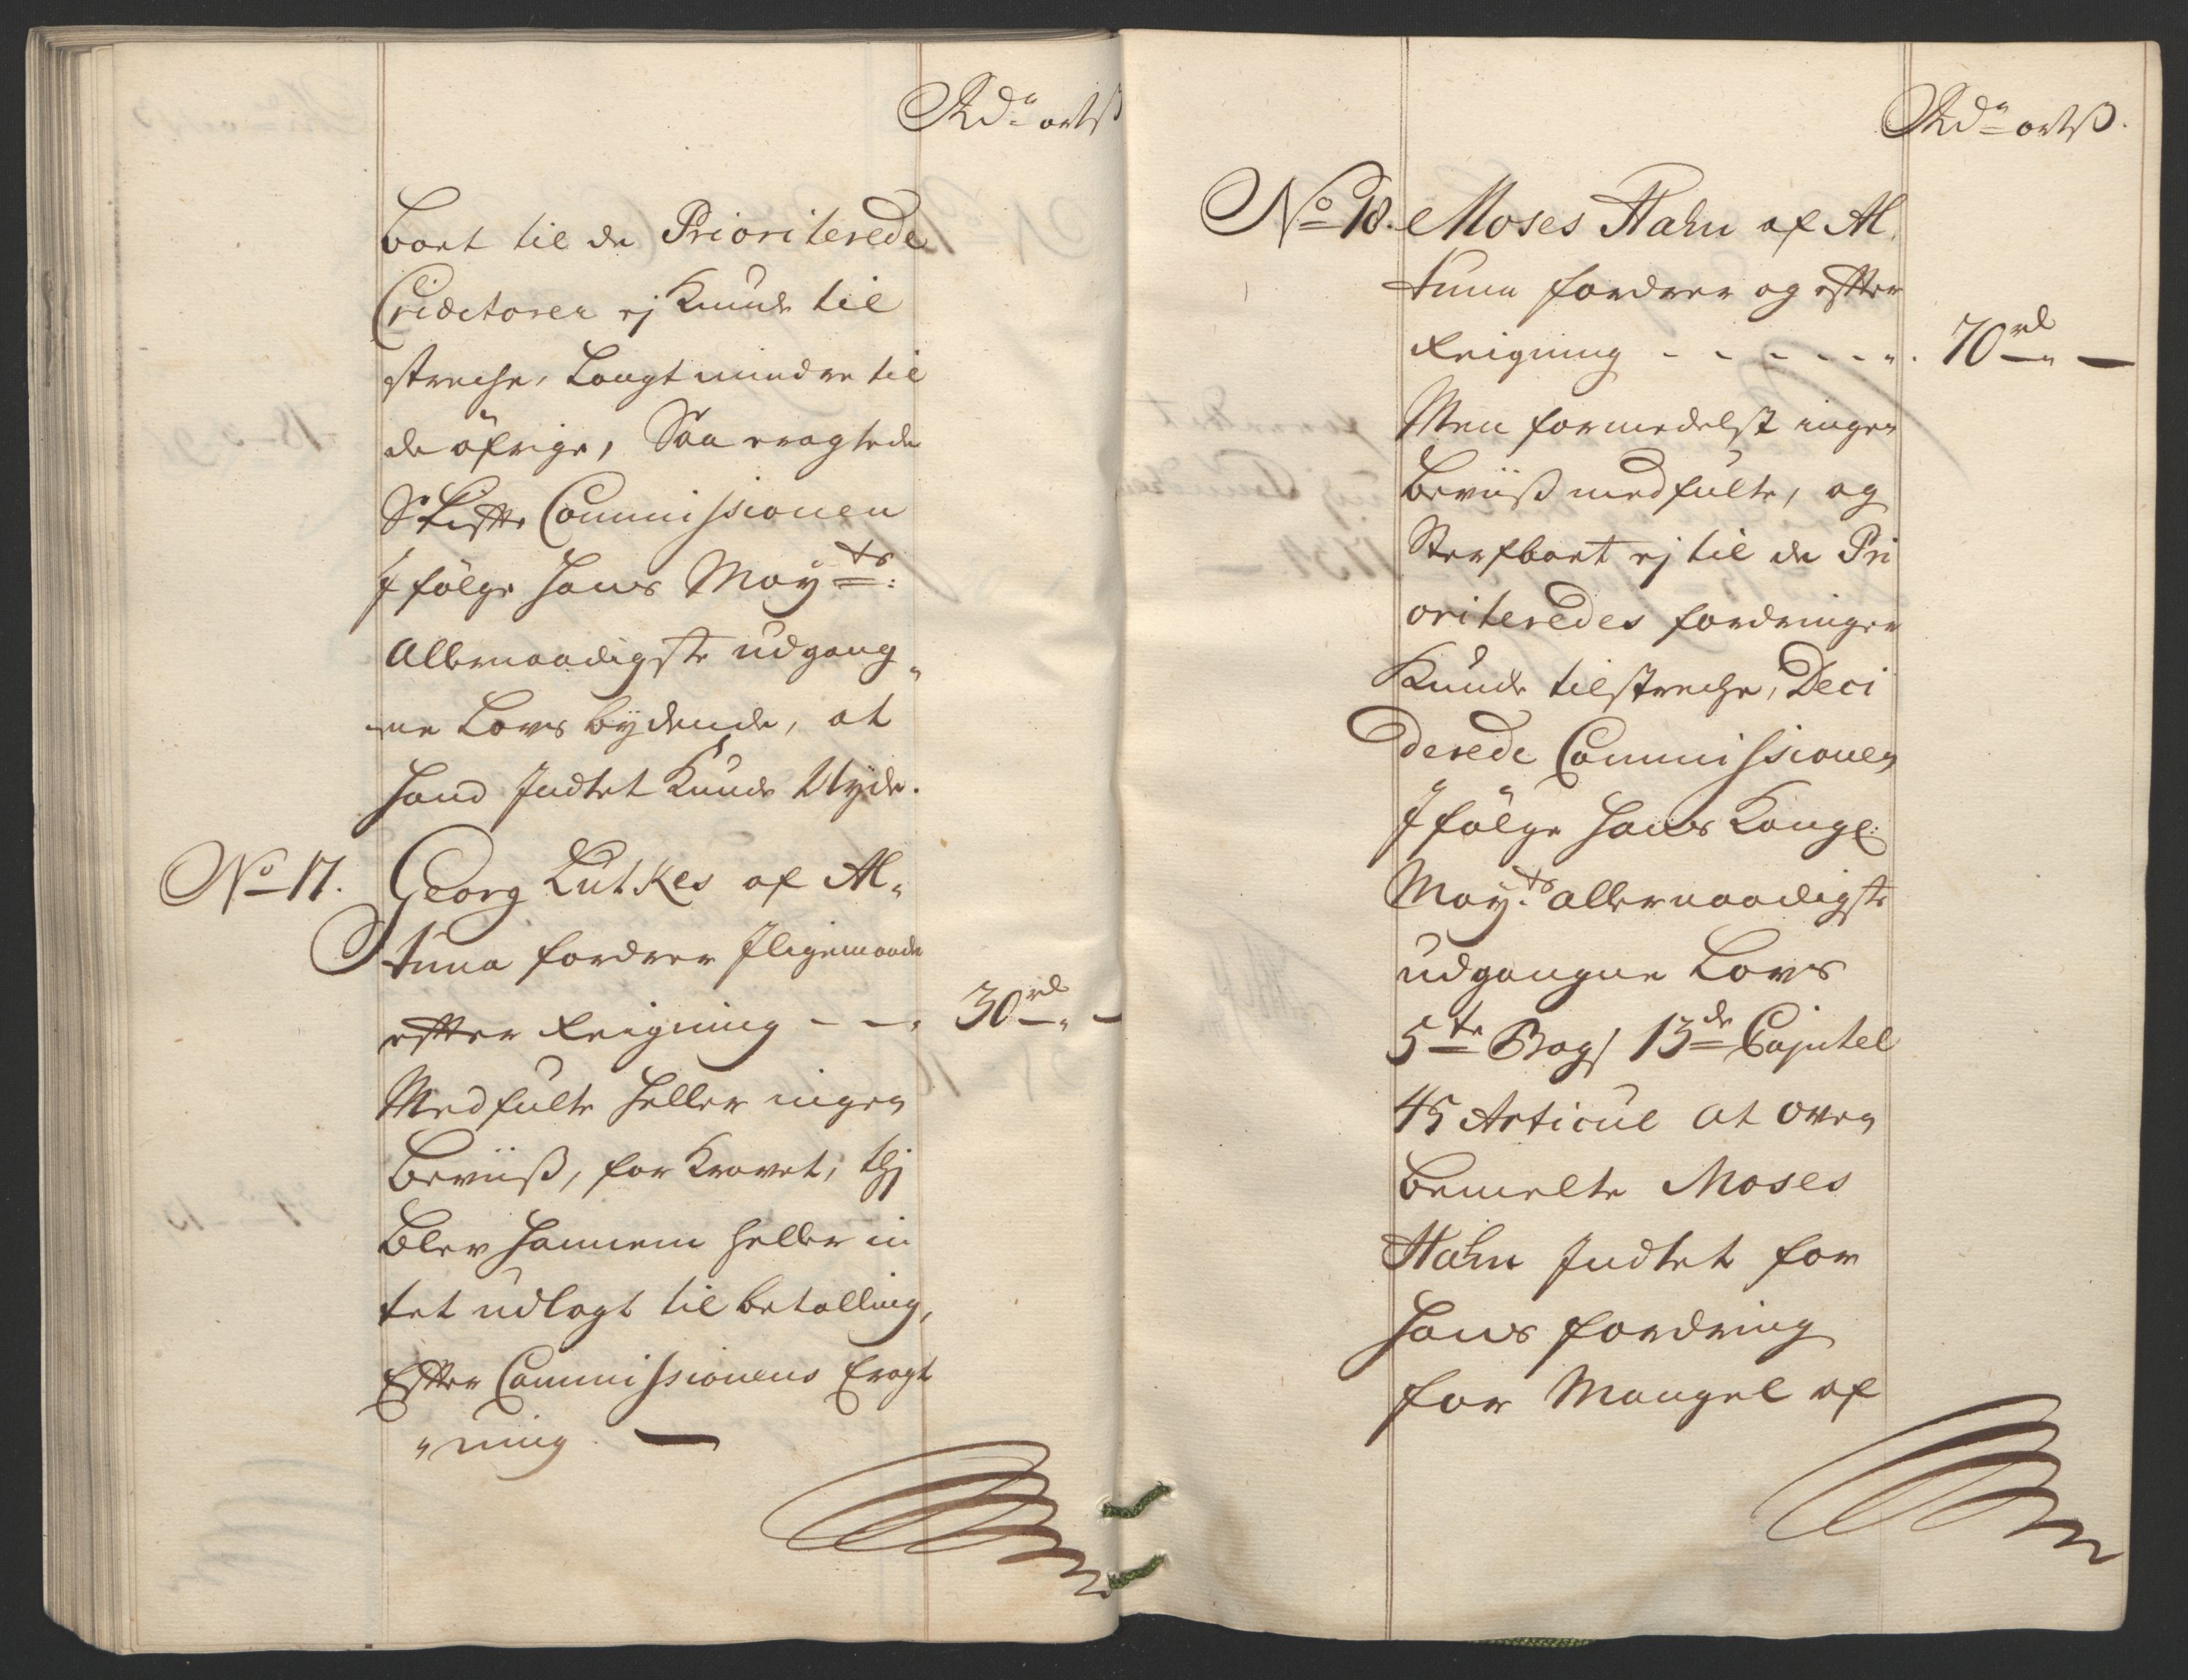 Rdr ortß
boet til de Prioriterede
Creditorer ej kunde til
streche, langt mindre til
de öfrige, Saa eragtede
Skifte Commissionen
Jfölge Hans Mayts:
Allernaadigste udgang„
„ne Lovs bydende, at
hand Indtet kunde Nyde.
No 17. Georg Lutkes af Al„
tuna fordrer Jligemaade
efter Reigning - - „ 30 rd „ -
Medfulte heller ingen
Beviiß, for Kravet, thj
blev hannem heller in
tet udlagt til betalling,
Efter Commissionens Eragt
„ning. —
Rdr ortß.
No 18. Moses Hahn af Al
tuna fordrer og efter
Reigning - - - - - „ . 70 rd „ —
Men formedelst ingen
Beviiß medfulte, og
Sterfboet ej til de Pri
oriteredes fordringer
kunde tilstreche, Deci
derede Commissionen
Jfölge Hans Kongl:
Mayts: allernaadigste
udgangne Lovs
5te Bogs 13de Capitel
45 Articul at oven
bemelte Moses
Hahn Indtet for
hans fordring
for Mangel af